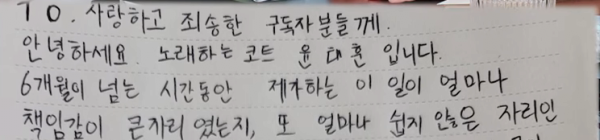 TO. 사랑하고 죄송한 구독자분들께.
안녕하세요 노래하는 코트 윤대훈 입니다.
6개월이 넘는 시간동안 제가하는 이 일이 얼마나
책임감이 큰자리 였는지, 또 얼마나 쉽지 않은 자리인